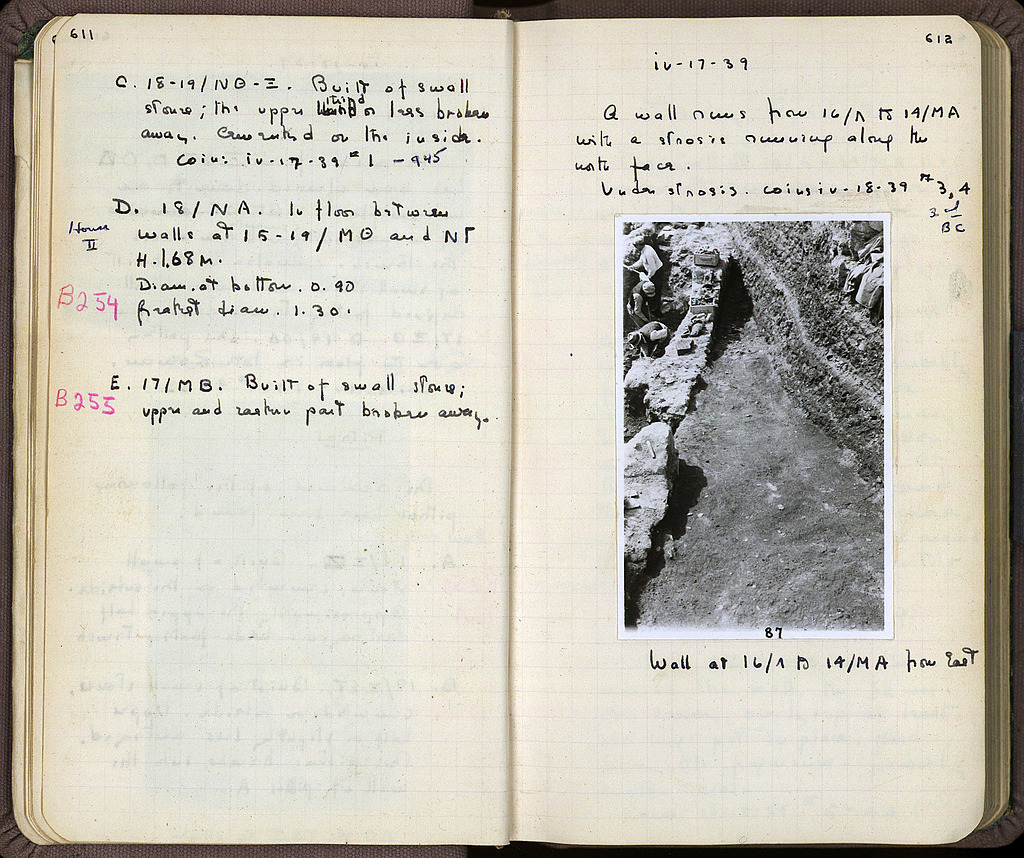 611
C. 18-19/ΝΘ-Ξ. Built of small
stones; the upper third or less broken
away. Cemented on the inside.
Coin: iv-17-39 #1 - 945
D. 18/ΝΑ. In floor between
House
II
walls at 15-19/ΜΘ and ΝΓ
H. 1.68 m.
Diam. at bottom. 0.90
B254
Greatest diam. 1.30.
E. 17/ΜΒ. Built of small stones;
B255
upper and eastern part broken away.
612
iv-17-39
A wall runs from 16/Λ to 14/ΜΑ
with a strosis running along the
north face.
Under strosis. coins iv-18-39 #3, 4
3
BC
87
Wall at 16/Λ to 14/ΜΑ from East